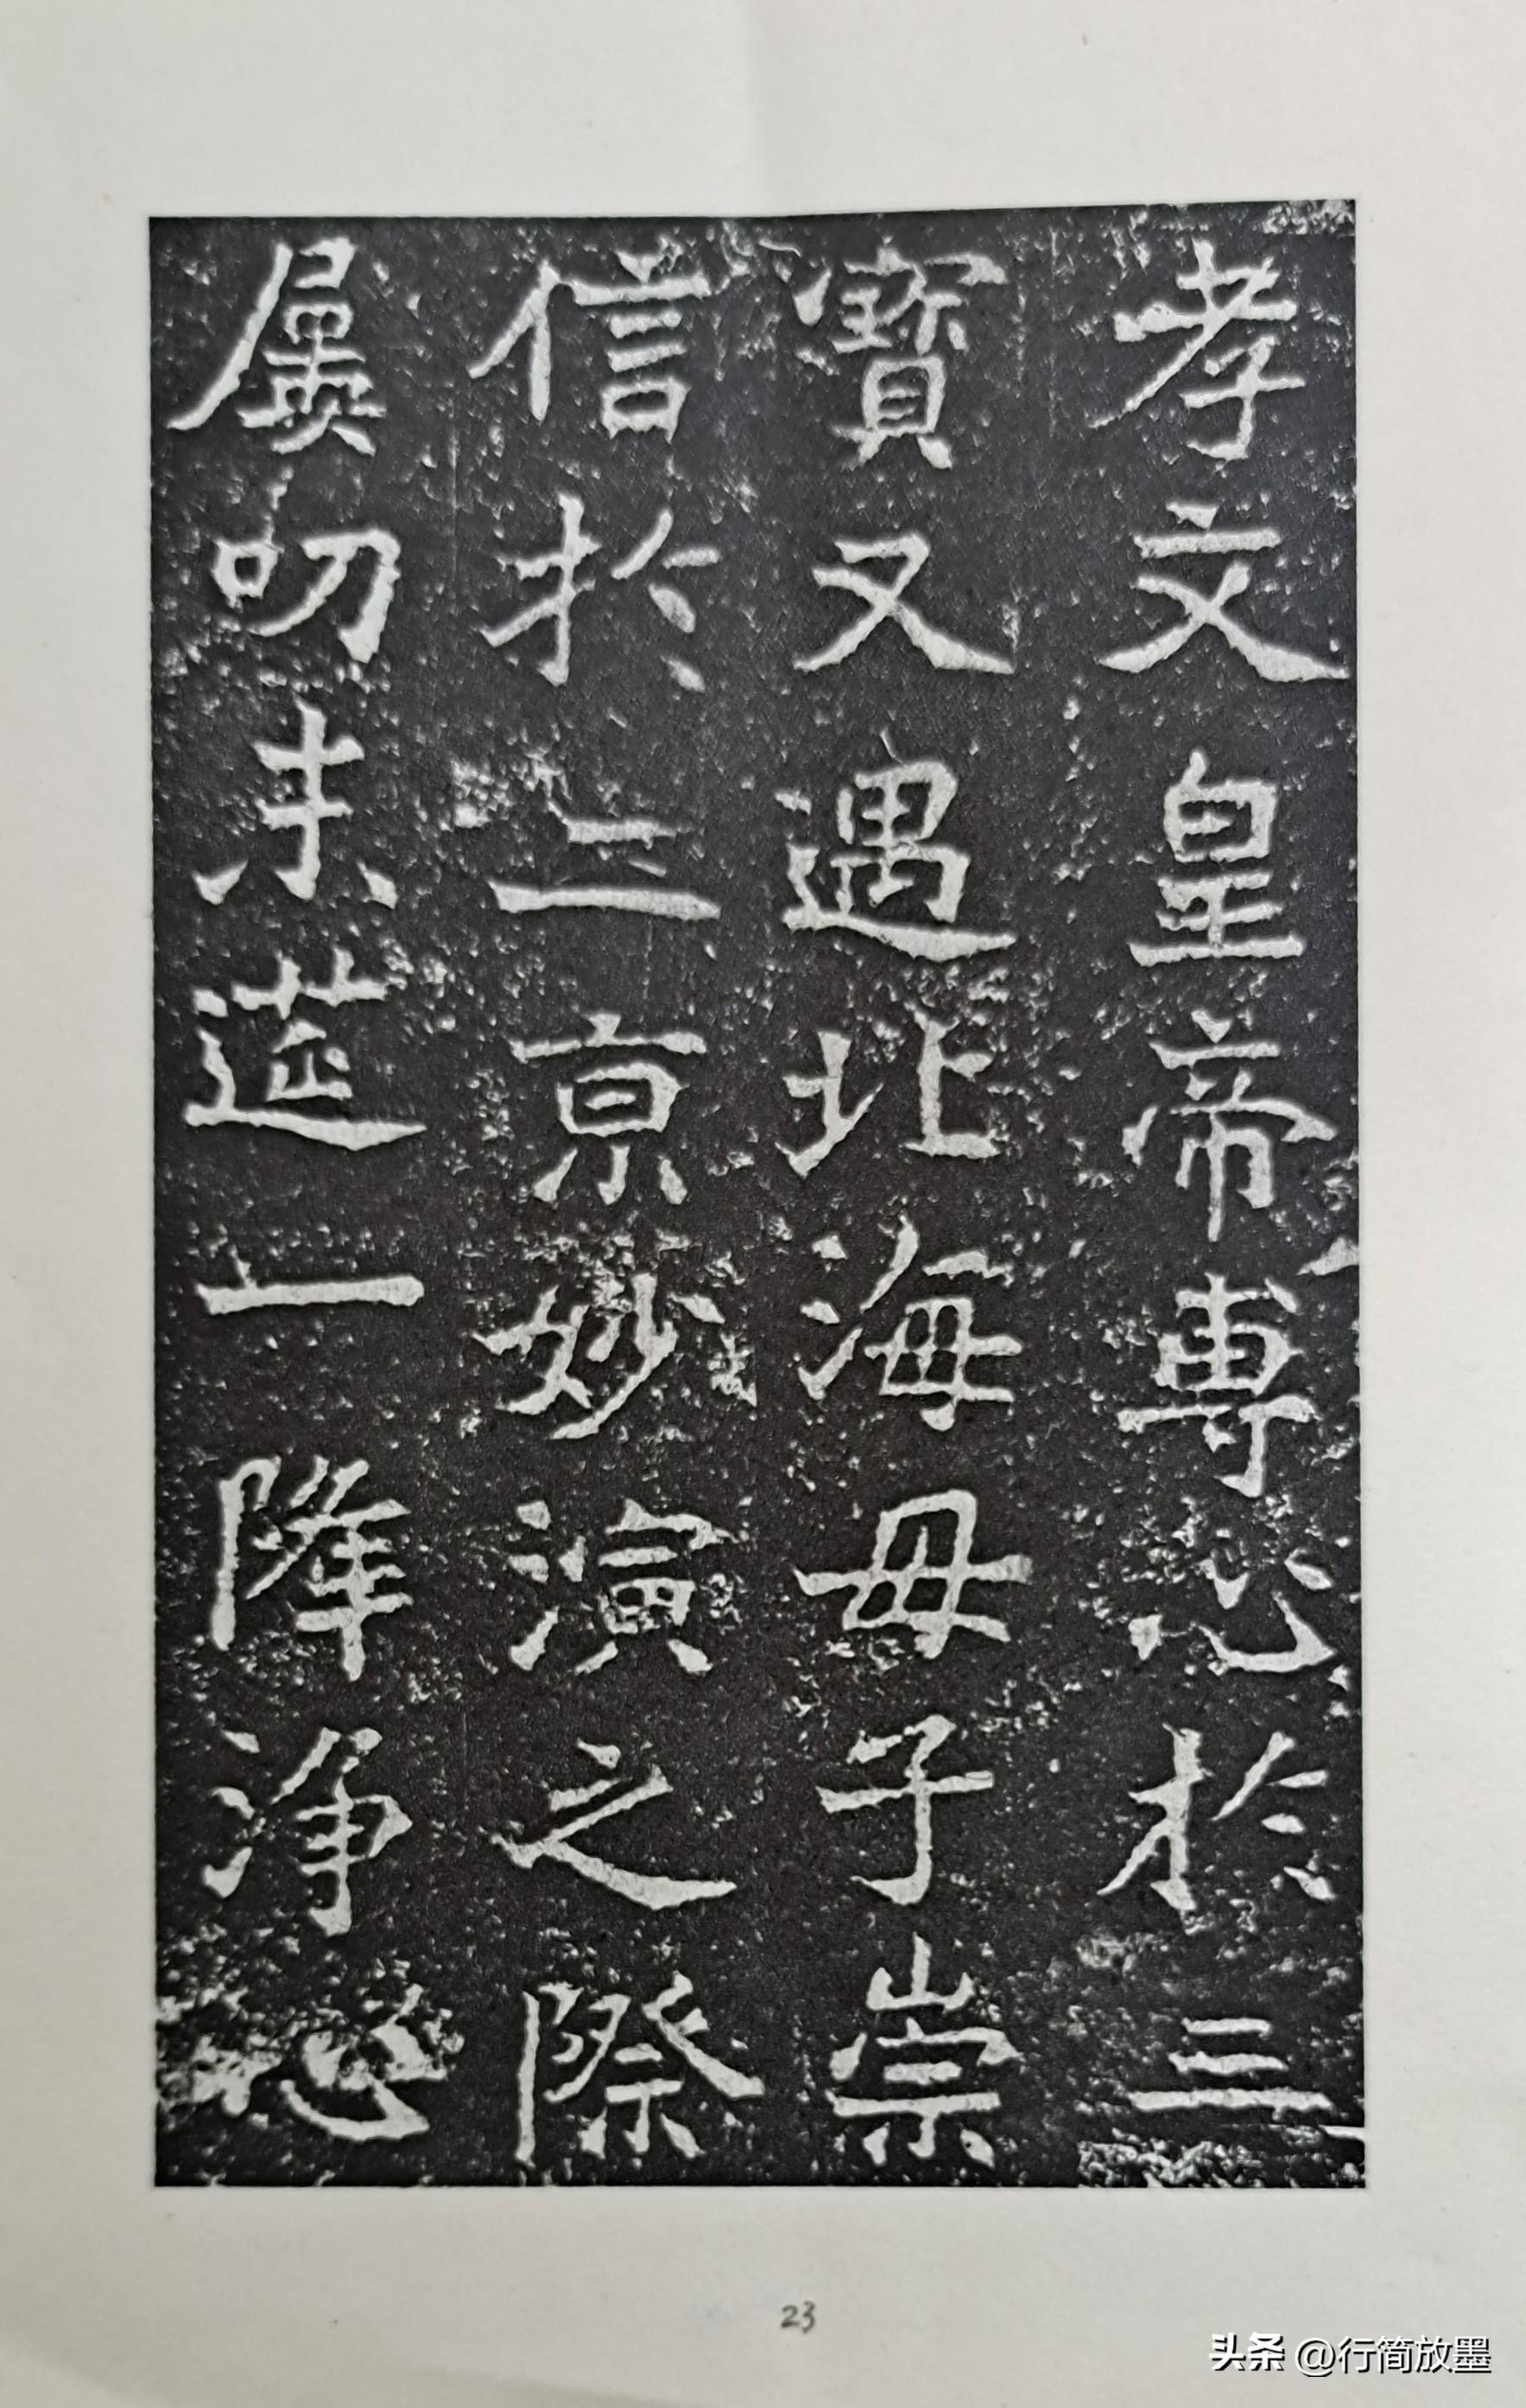 孝文皇帝專心於三
寶又遇北海母子崇
信於二京妙演之際
屢叨末筵一降淨心
23
头条 @行简放墨